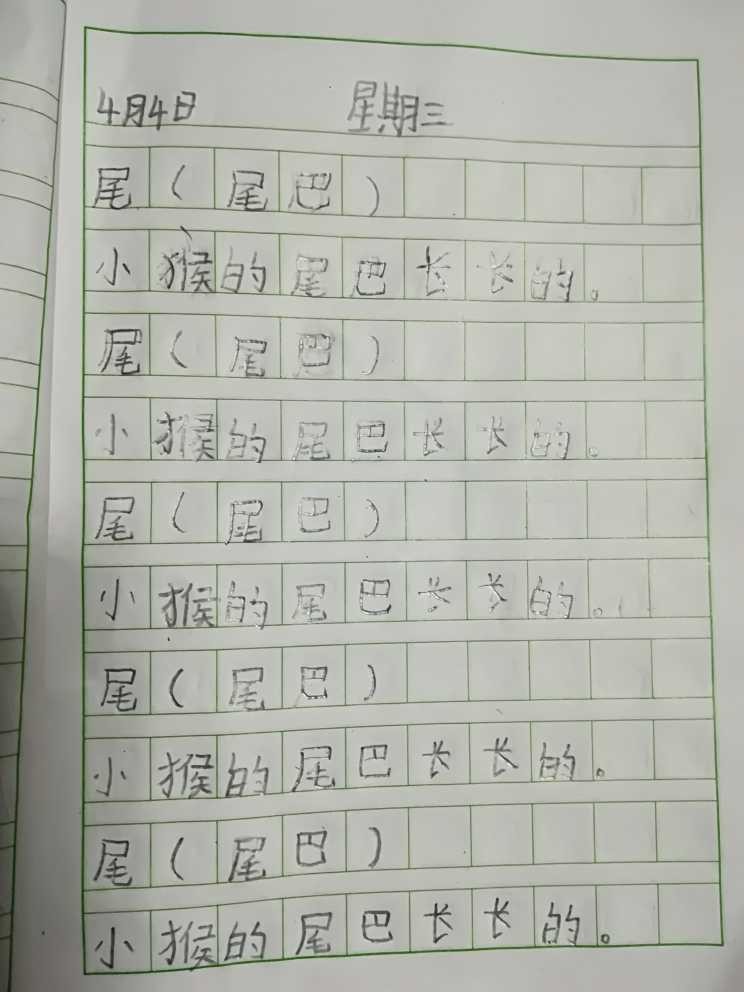 4月4日 星期三
尾（尾巴）
小猴的尾巴长长的。
尾（尾巴）
小猴的尾巴长长的。
尾（尾巴）
小猴的尾巴长长的。
尾（尾巴）
小猴的尾巴长长的。
尾（尾巴）
小猴的尾巴长长的。